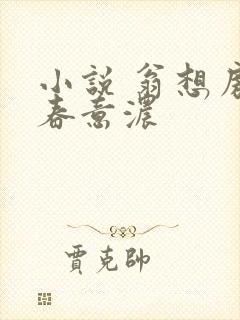 小說 翁想房
春意濃
賈克帥